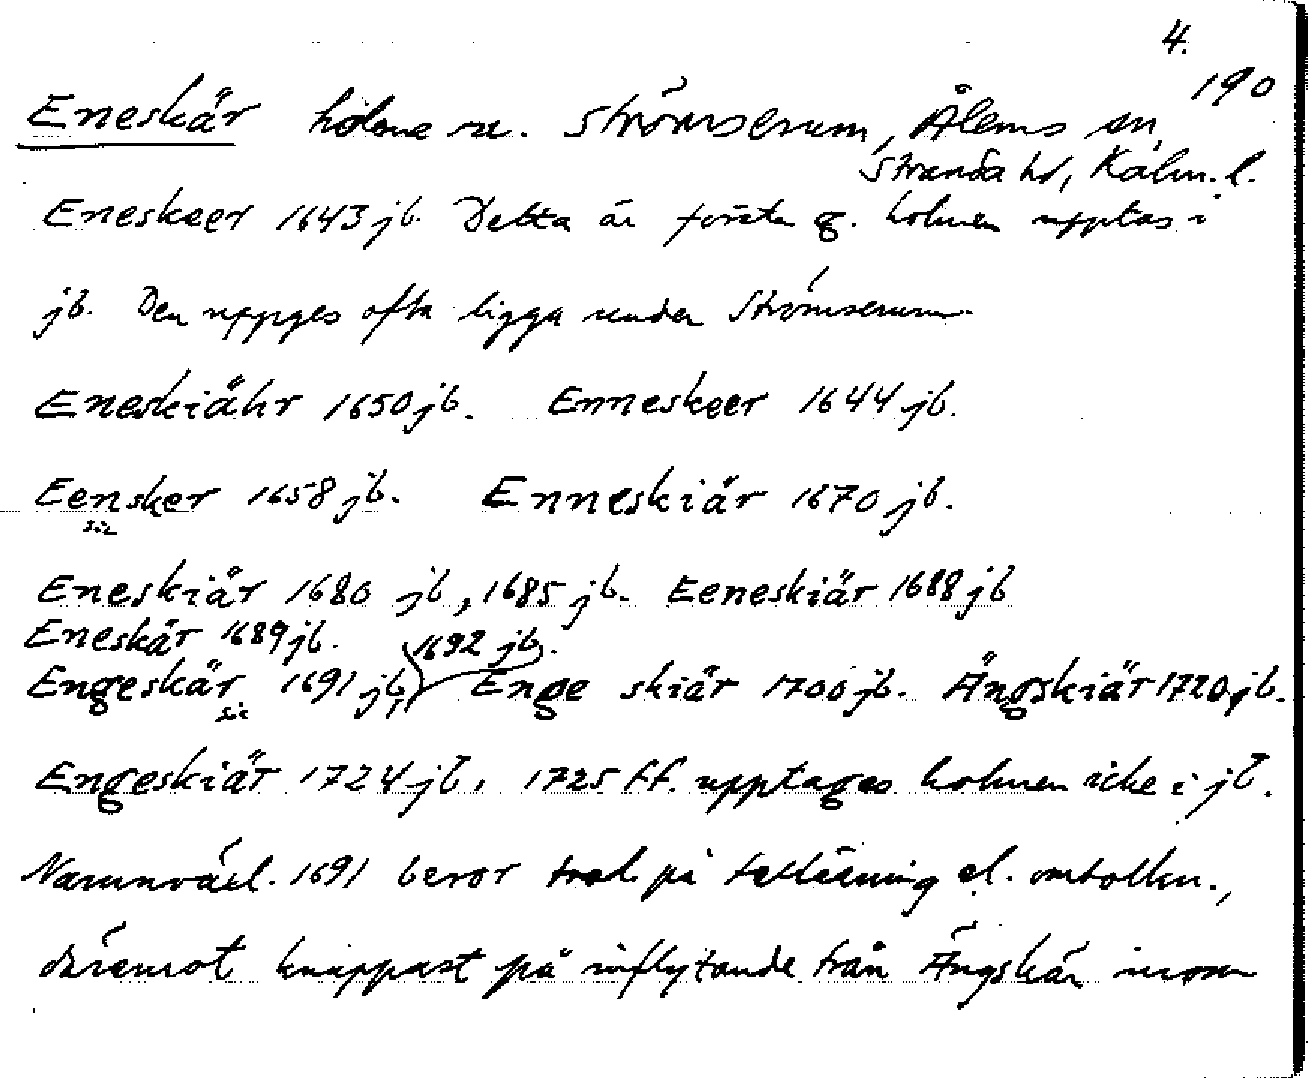 4.
190
Eneskär holme u. Strömserum, Ålems sn,
Stranda hd, Kalm. l.
Eneskeer 1643 jb. Detta är första g. holmen upptas i
jb. Den uppges ofta ligga under Strömserum.
Eneskiähr 1650 jb. Enneskeer 1644 jb.
Eensker 1658 jb. Enneskiär 1670 jb.
sic
Eneskiär 1680 jb, 1685 jb. Eeneskiär 1688 jb
Eneskär 1689 jb. 1692 jb.
Engeskär 1691 jb, Enge skiär 1700 jb. Ängskiär 1720 jb.
sic
Engeskiär 1724 jb, 1725 ff. upptages holmen icke i jb.
Namnväxl. 1691 beror trol. på felläsning el. omtolkn.,
däremot knappast på inflytande från Ängskär inom